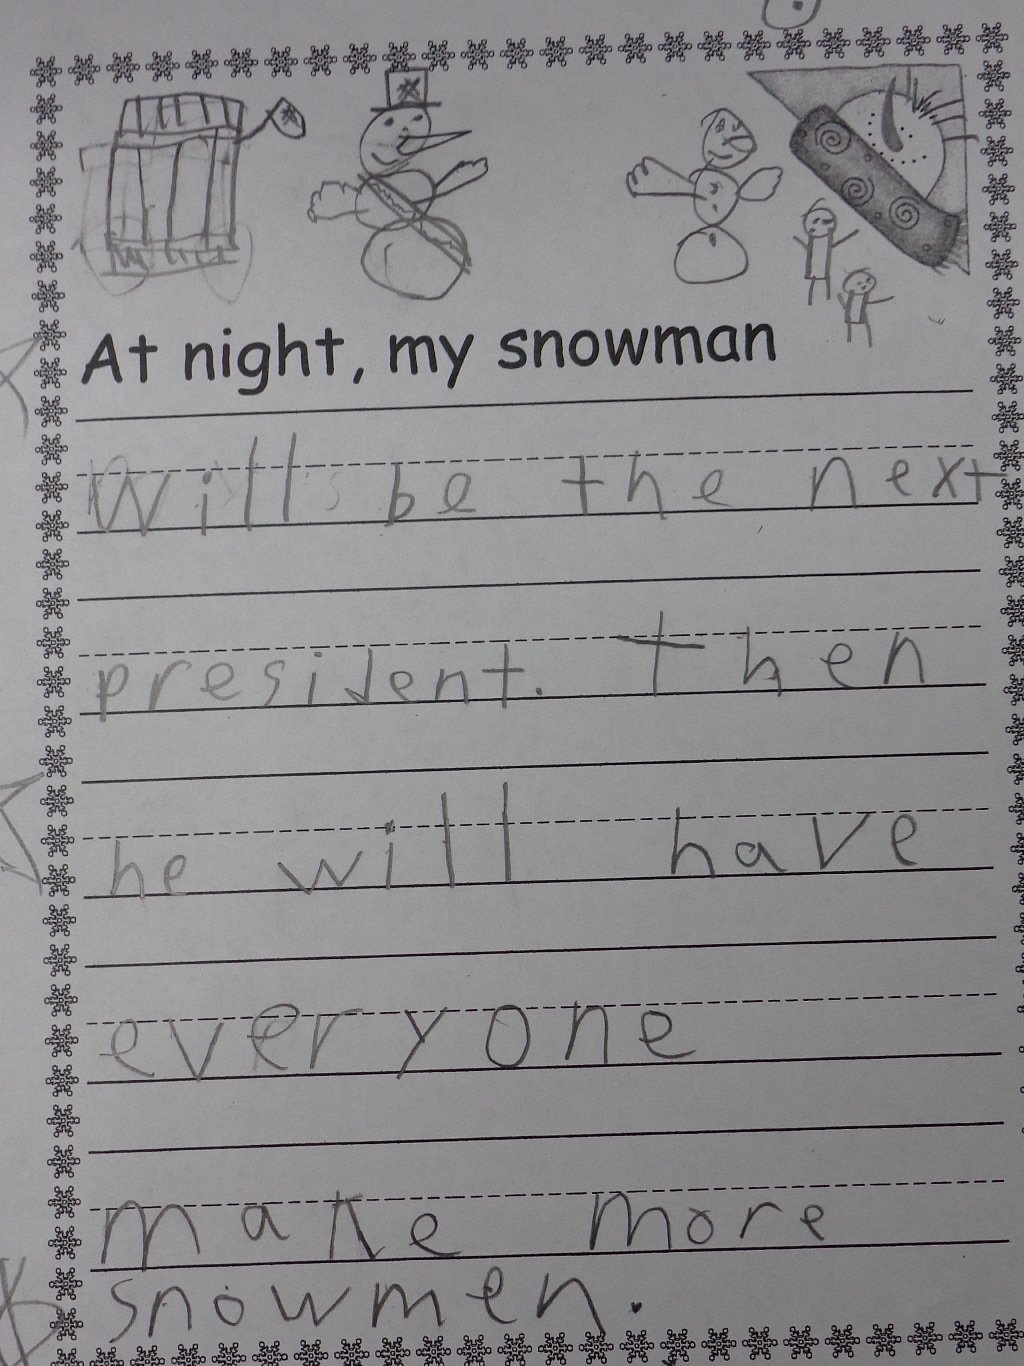 At night, my snowman
Will be the next
president. Then
he will have
everyone
make more
snowmen.